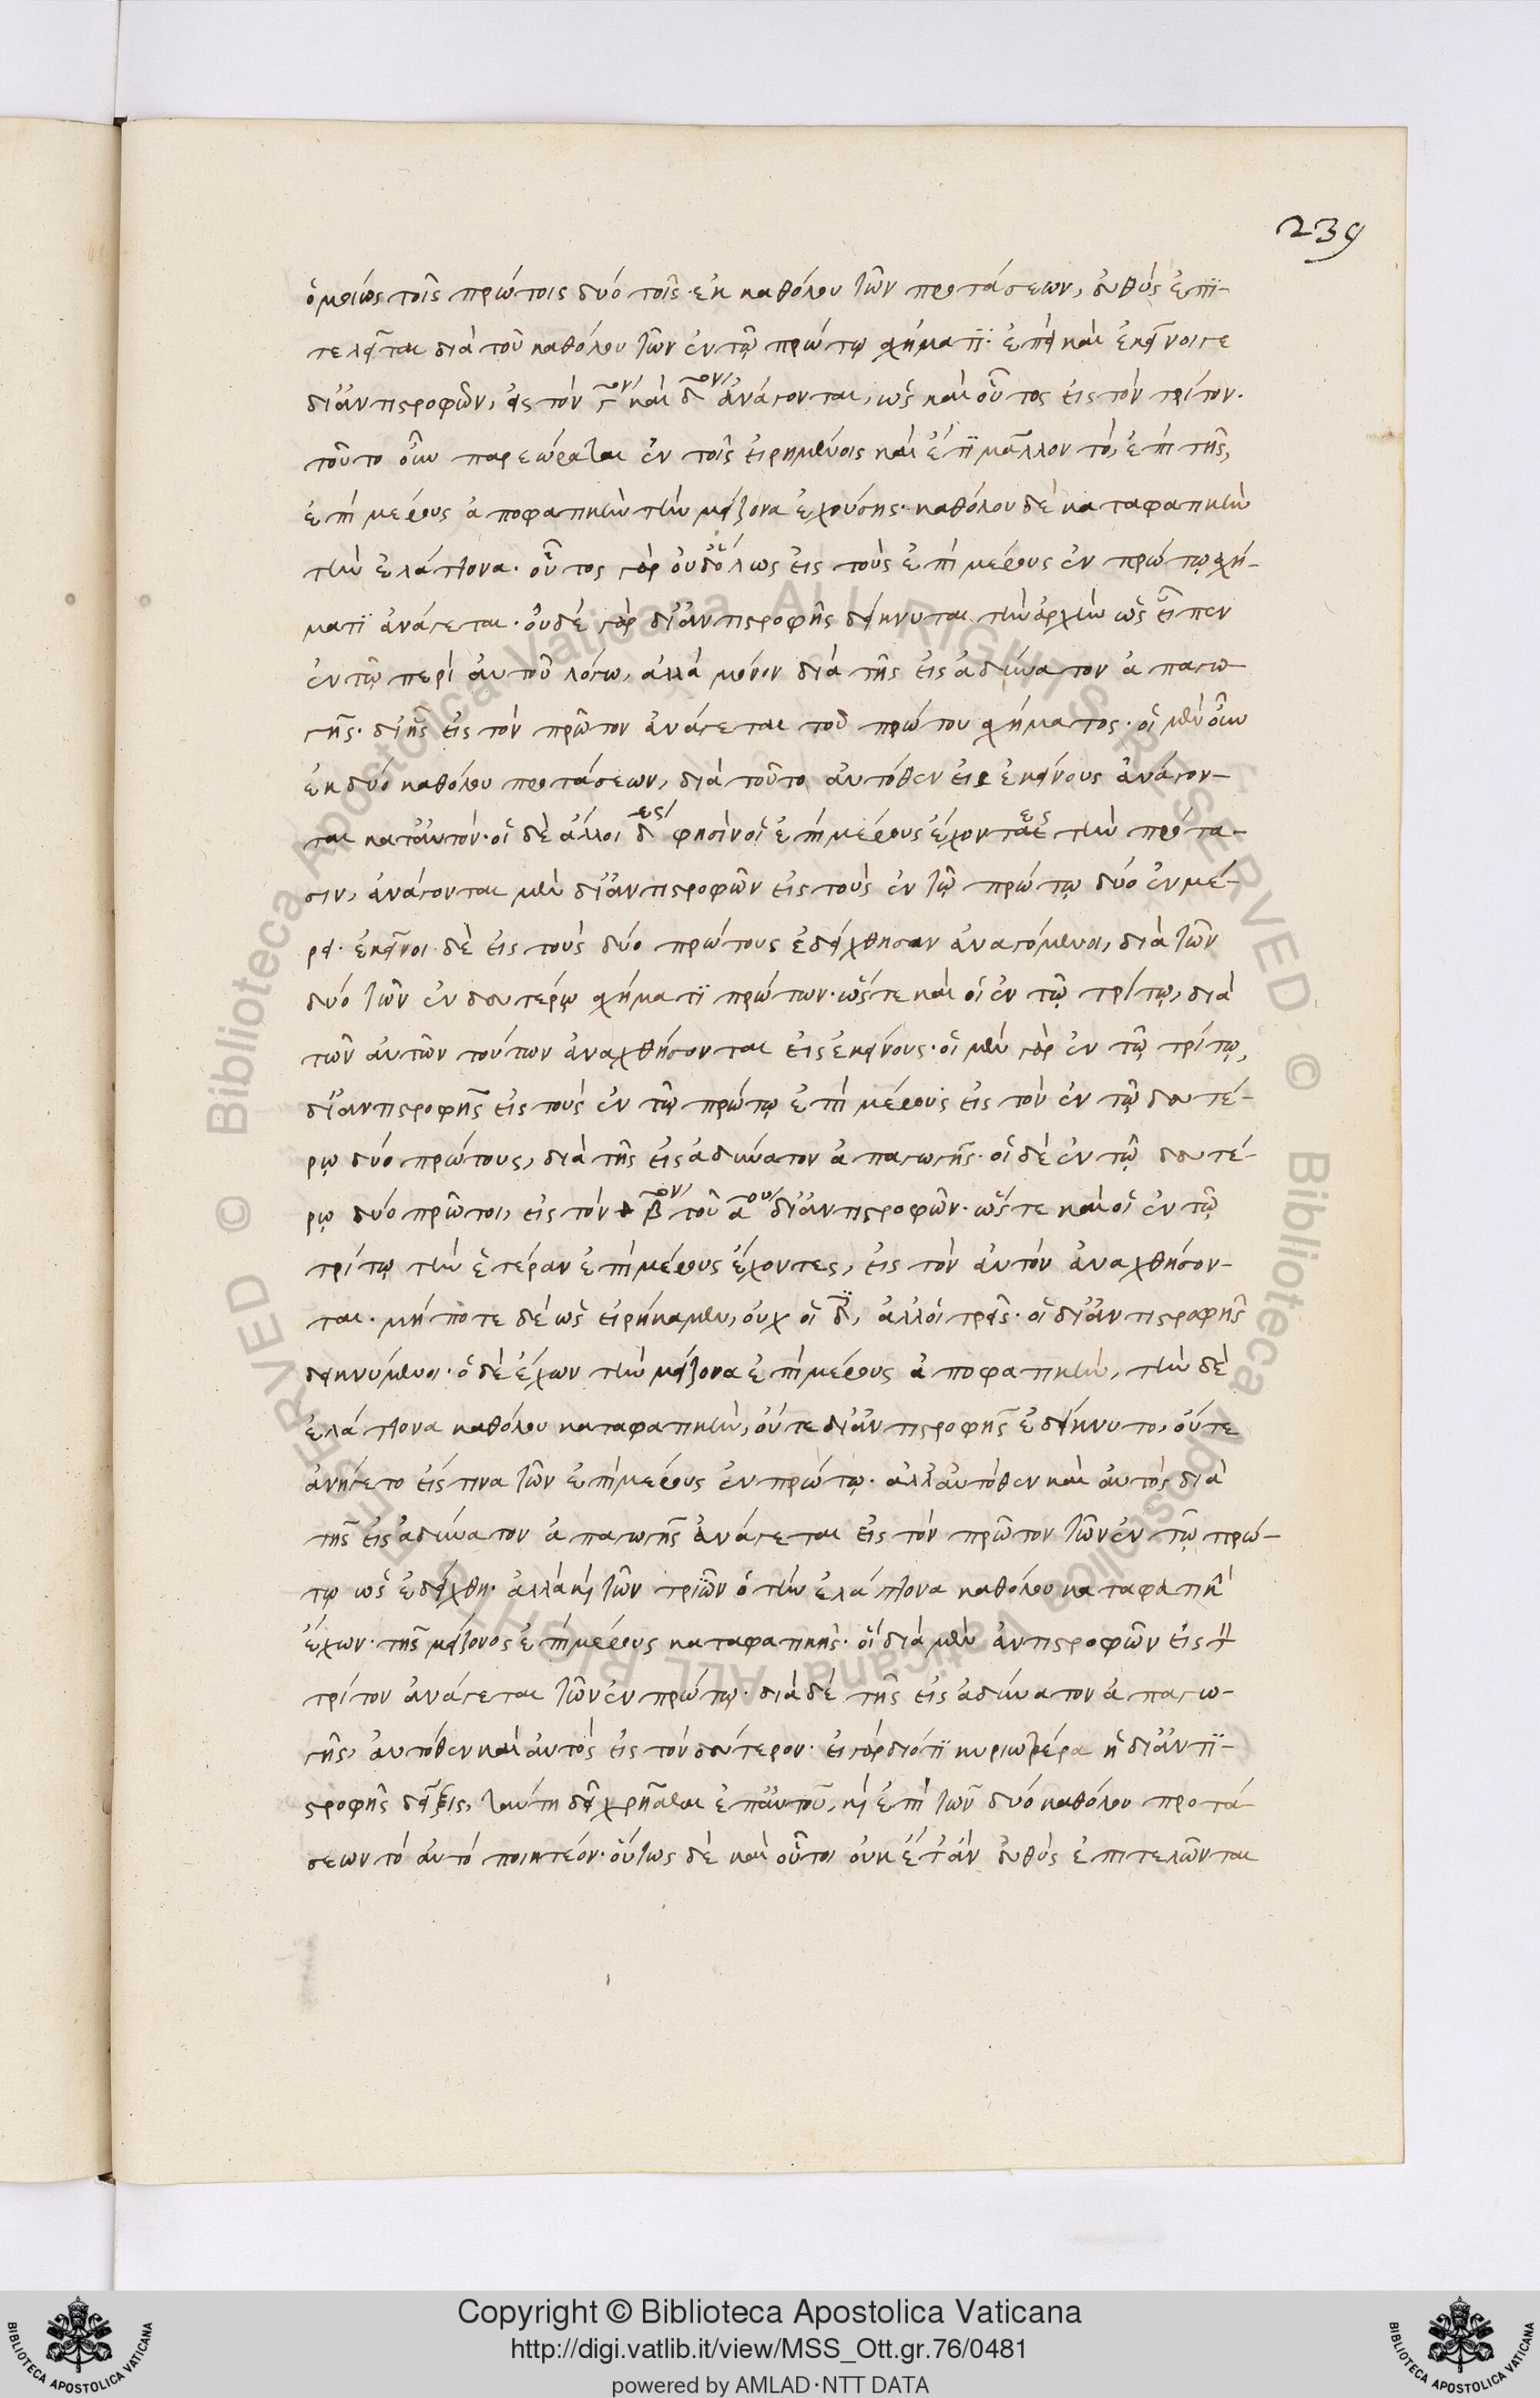 239
ὁμοίως τοῖς πρώτοις δυό τοῖς ἐκ καθόλου τῶν προτάσεων, εὐθὺς ἐπι-
τελεῖται διὰ τοῦ καθόλου τῶν ἐν τῷ πρώτῳ σχήματι· ἐπεὶ καὶ ἐκεῖνοί γε
δι' ἀντιστροφῶν, εἰς τὸν γον καὶ δον ἀνάγονται, ὡς καὶ οὗτος εἰς τὸν τρίτον.
τοῦτο οὖν παρεώραται ἐν τοῖς εἰρημένοις καὶ ἔτι μᾶλλον τὸ, ἐπὶ τῆς,
ἐπὶ μέρους ἀποφατικὴν τὴν μείζονα ἐχούσης· καθόλου δὲ καταφατικὴν
τὴν ἐλάττονα. οὗτος γὰρ οὐδ' ὅλως εἰς τοὺς ἐπὶ μέρους ἐν πρώτῳ σχή-
ματι ἀνάγεται· οὐδὲ γὰρ δι' ἀντιστροφῆς δείκνυται τὴν ἀρχὴν ὡς εἶπεν
ἐν τῷ περὶ αὐτοῦ λόγω, ἀλλὰ μόνον διὰ τῆς εἰς ἀδύνατον ἀπαγω-
γῆς· δι' ἧς εἰς τὸν πρῶτον ἀνάγεται τοῦ πρώτου σχήματος· οἱ μὲν οὖν
ἐκ δυό καθόλου προτάσεων, διὰ τοῦτο αὐτόθεν εἰς ἐκείνους ἀνάγον-
ται κατ' αὐτόν· οἱ δὲ ἄλλοι δ φησὶν οἱ ἐπὶ μέρους ἔχοντες τὴν πρότα-
σιν, ἀνάγονται μὲν δι' ἀντιστροφῶν εἰς τοὺς ἐν τῷ πρώτῳ δύο ἐν μέ-
ρει· ἐκεῖνοι δὲ εἰς τοὺς δύο πρώτους ἐδείχθησαν ἀναγόμενοι, διὰ τῶν
δυό τῶν ἐν δευτέρῳ σχήματι πρώτων· ὥστε καὶ οἱ ἐν τῷ τρίτῳ, διὰ
τῶν αὐτῶν τούτων ἀναχθήσονται εἰς ἐκείνους· οἱ μὲν γὰρ ἐν τῷ τρίτῳ,
δι' ἀντιστροφῆς εἰς τοὺς ἐν τῷ πρώτῳ ἐπὶ μέρους εἰς τὸν ἐν τῷ δευτέ-
ρῳ δύο πρώτους, διὰ τῆς εἰς ἀδύνατον ἀπαγωγῆς· οἱ δὲ ἐν τῷ δευτέ-
ρῳ δύο πρῶτοι, εἰς τὸν βον τοῦ αου δι' ἀντιστροφῶν· ὥστε καὶ οἱ ἐν τῷ
τρίτῳ τὴν ἑτέραν ἐπὶ μέρους ἔχοντες, εἰς τὸν αὐτὸν ἀναχθήσον-
ται· μήποτε δὲ ὡς εἰρήκαμεν, οὐχ οἱ δ, ἀλλ' οἱ τρεῖς· οἱ δι' ἀντιστροφῆς
δεικνύμενοι· ὁ δὲ ἔχων τὴν μείζονα ἐπὶ μέρους ἀποφατικὴν, τὴν δὲ
ἐλάττονα καθόλου καταφατικὴν, οὔτε δι' ἀντιστροφῆς ἐδείκνυτο, οὔτε
ἀνήγετο εἴς τινα τῶν ἐπὶ μέρους ἐν πρώτῳ· ἀλλ' αὐτόθεν καὶ αὐτὸς διὰ
τῆς εἰς ἀδύνατον ἀπαγωγῆς ἀνάγεται εἰς τὸν πρῶτον τῶν ἐν τῷ πρώ-
τῳ ὡς ἐδείχθη· ἀλλὰ καὶ τῶν τριῶν ὁ τὴν ἐλάττονα καθόλου καταφατικὴ
ἔχων· τῆς μείζονος ἐπὶ μέρους καταφατικῆς· οἱ διὰ μὲν ἀντιστροφῶν εἰς τ
τρίτον ἀνάγεται τῶν ἐν πρώτῳ· διὰ δὲ τῆς εἰς ἀδύνατον ἀπαγω-
γῆς, αὐτόθεν καὶ αὐτὸς εἰς τὸν δεύτερον· εἰ γὰρ διότι κυριωτέρα ἡ δι' ἀντι-
στροφῆς δεῖξις, ταύτῃ δεῖ χρῆσθαι ἐπ' αὐτοῦ, καὶ ἐπὶ τῶν δυό καθόλου προτά-
σεων τὸ αὐτὸ ποιητέον· οὕτως δὲ καὶ οὗτοι οὐκέτ' ἀν εὐθὺς ἐπιτελῶνται
Copyright © Biblioteca Apostolica Vaticana
http://digi.vatlib.it/view/MSS_Ott.gr.76/0481
powered by AMLAD·NTT DATA